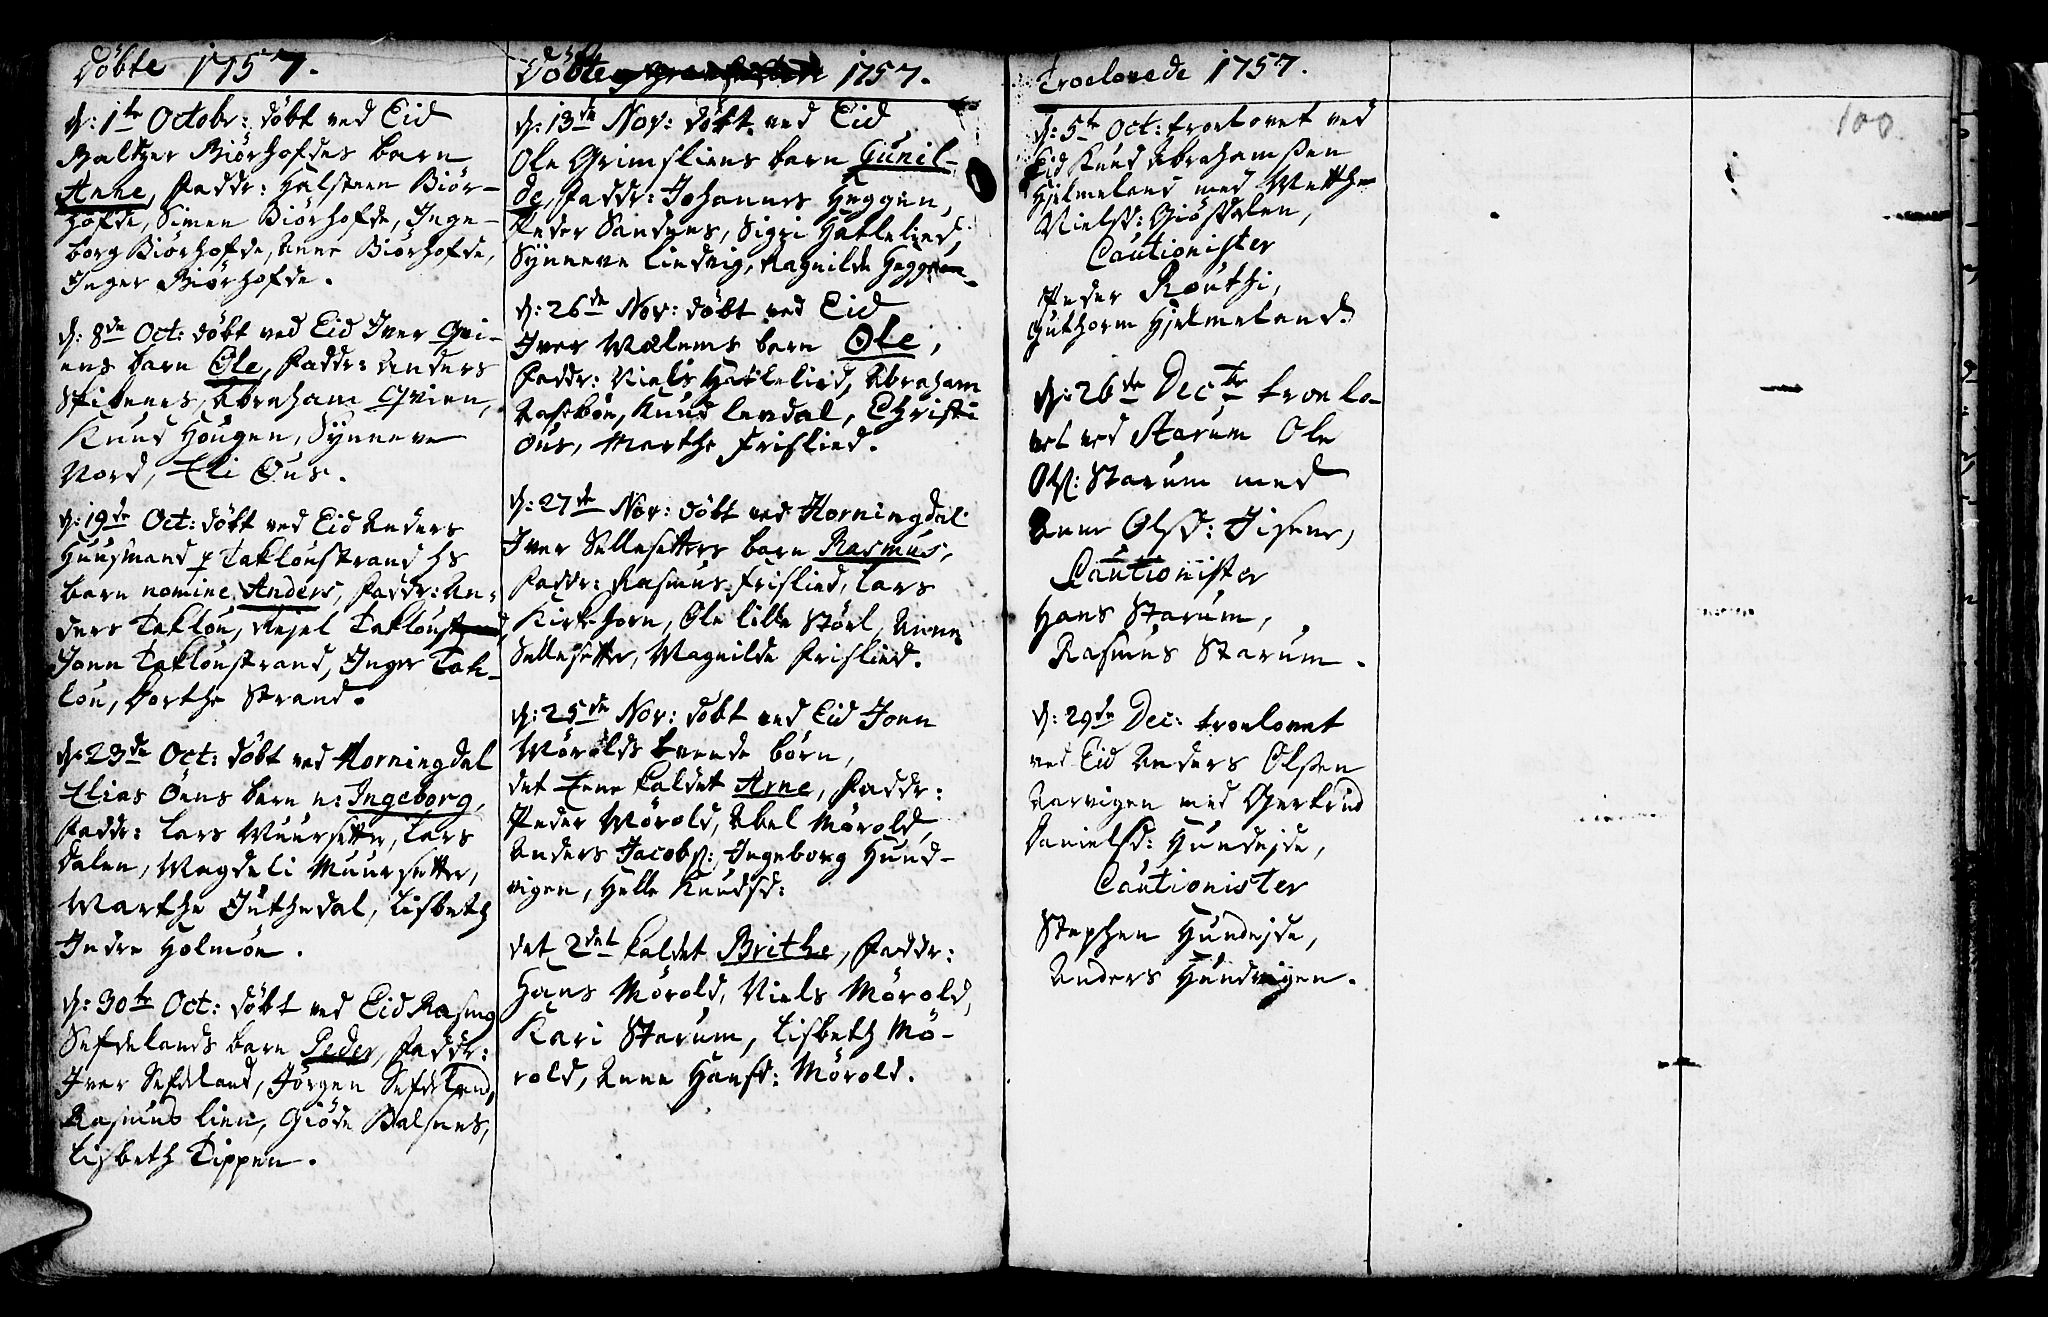 Döbte 1757.
d: 1te Octobr: döbt ved Eid
Baltzer Biörhofdes barn
Anne, Faddr: Halsteen Biör-
hofde, Simen Biörhofde, Inge-
borg Biörhofde, Anne Biörhofde,
Inger Biörhofde.
d: 8de Oct: döbt ved Eid Iver Qvi-
ens barn Ole, Faddr: Anders
Abraham Qvien,
Knud Hougen, Synneve
Nord, Eli Ous.
d: 19de Oct: döbt ved Eid Anders
Huusmand p Takloustrand hs
barn nomine Anders, Faddr: An-
ders Taklou, Rejel
Joen Takloustrand, Inger Tak-
lou, Dorthe Strand.
d: 23de Oct: döbt ved Horningdal
Elias Öens barn n: Ingeborg,
Faddr: Lars Muursetter, Lars
Dalen, Magdeli Muursetter,
Marthe Juthedal, Lisbeth
Indre Holmöe.
d: 30te Oct: döbt ved Eid Rasmus
Sefdelands barn Peder, Faddr:
Iver Sefdeland, Jörgen Sefdeland,
Rasmus Lien, Giöde Balsnes,
Lisbeth Tippen.
Döbte 1757.
d: 13de Nov: döbt ved Eid
Ole Grimsliens barn Gunil-
de, Faddr: Johannes Heggen,
Peder Sandnes, Sigri Hatlelied,
Synneve Liedvig, Ragnilde Heggen.
d: 26de Nov: döbt ved Eid
Iver Mælems barn Ole,
Faddr: Niels Hatlelied, Abraham
Knud Levdal, Christi
Ous, Marthe Frislied.
d: 27de Nov: döbt ved Horningdal
Iver Sellesetters barn Rasmus,
Faddr: Rasmus Frislied, Lars
Kirkhorn, Ole lille Störl, Anne
Sellesetter, Magnilde Frislied.
d: 25de Nov: döbt ved Eid Joen
Mörolds tvende börn,
det Eene kaldet Arne, Faddr:
Peder Mörold, Abel Mörold,
Anders Jacobs: Ingeborg Hund-
vigen, Helle Knudsd:
det 2det kaldet Brithe, Faddr:
Hans Mörold, Niels Mörold,
Kari Starum, Lisbeth Mö-
rold, Anne Hansd: Mörold.
Troelovede 1757.
100
d: 5te Oct: troelovet ved
Eid Knud Abrahamsen
Hjelmeland med Metthe
Nielsd: Giösdalen,
Cautionister
Peder Routhi,
Guthorm Hjelmeland.
d: 26de Decbr troelo-
vet ved Starum Ole
Ols: Starum med
Anne Olsd: Jisene,
Cautionister
Hans Starum,
Rasmus Starum.
d: 29de Dec: troelovet
ved Eid Anders Olsen
Aarvigen med Gertrud
Danielsd: Hundejde,
Cautionister
Stephen Hundejde,
Anders Hundvigen.